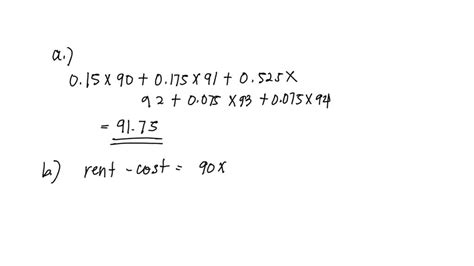 a.)
0.15 x 90 + 0.175 x 91 + 0.525 x
92 + 0.075 x 93 + 0.075 x 94
= 91.75
b) rent - cost = 90x